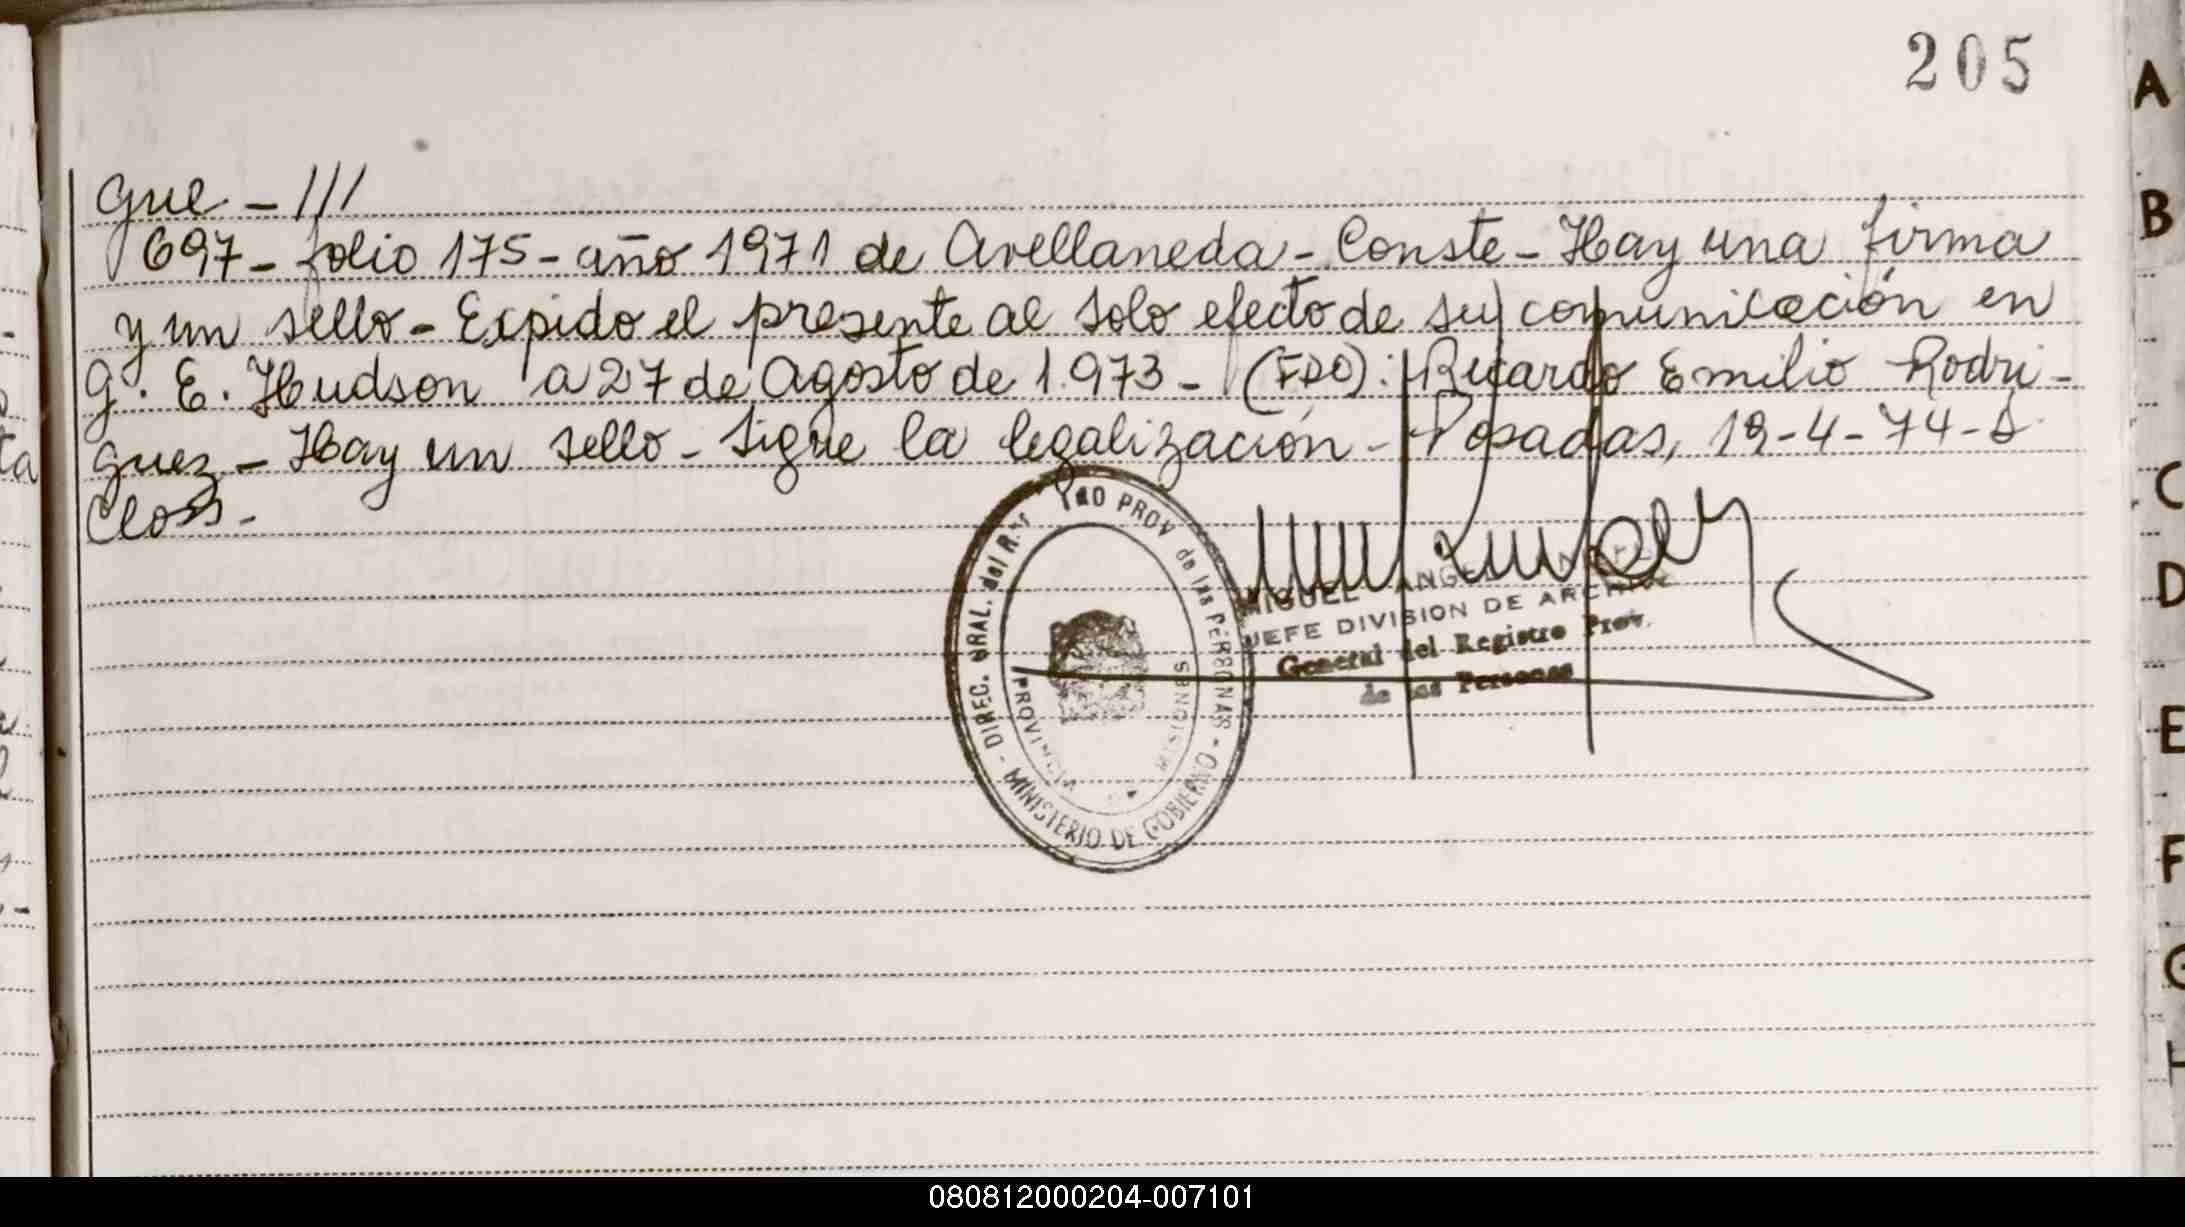 205
gue - ///
697 - folio 175 - año 1971 de Avellaneda - Conste - Hay una firma
y un sello - Expido el presente al solo efecto de su comunicación en
G. E. Hudson a 27 de Agosto de 1.973 - (FDO): Ricardo Emilio Rodri-
guez - Hay un sello - Sigue la legalización - Posadas, 19-4-74 - S
Closs -
DIREC. GRAL. del PROV de las PERSONAS - MINISTERIO DE GOBIERNO -
PROVINCIA MISIONES
MIGUEL ANGEL
JEFE DIVISION DE ARCHIVO
General del Registro Prov.
de las Personas
A
B
C
D
E
F
G
H
080812000204-007101